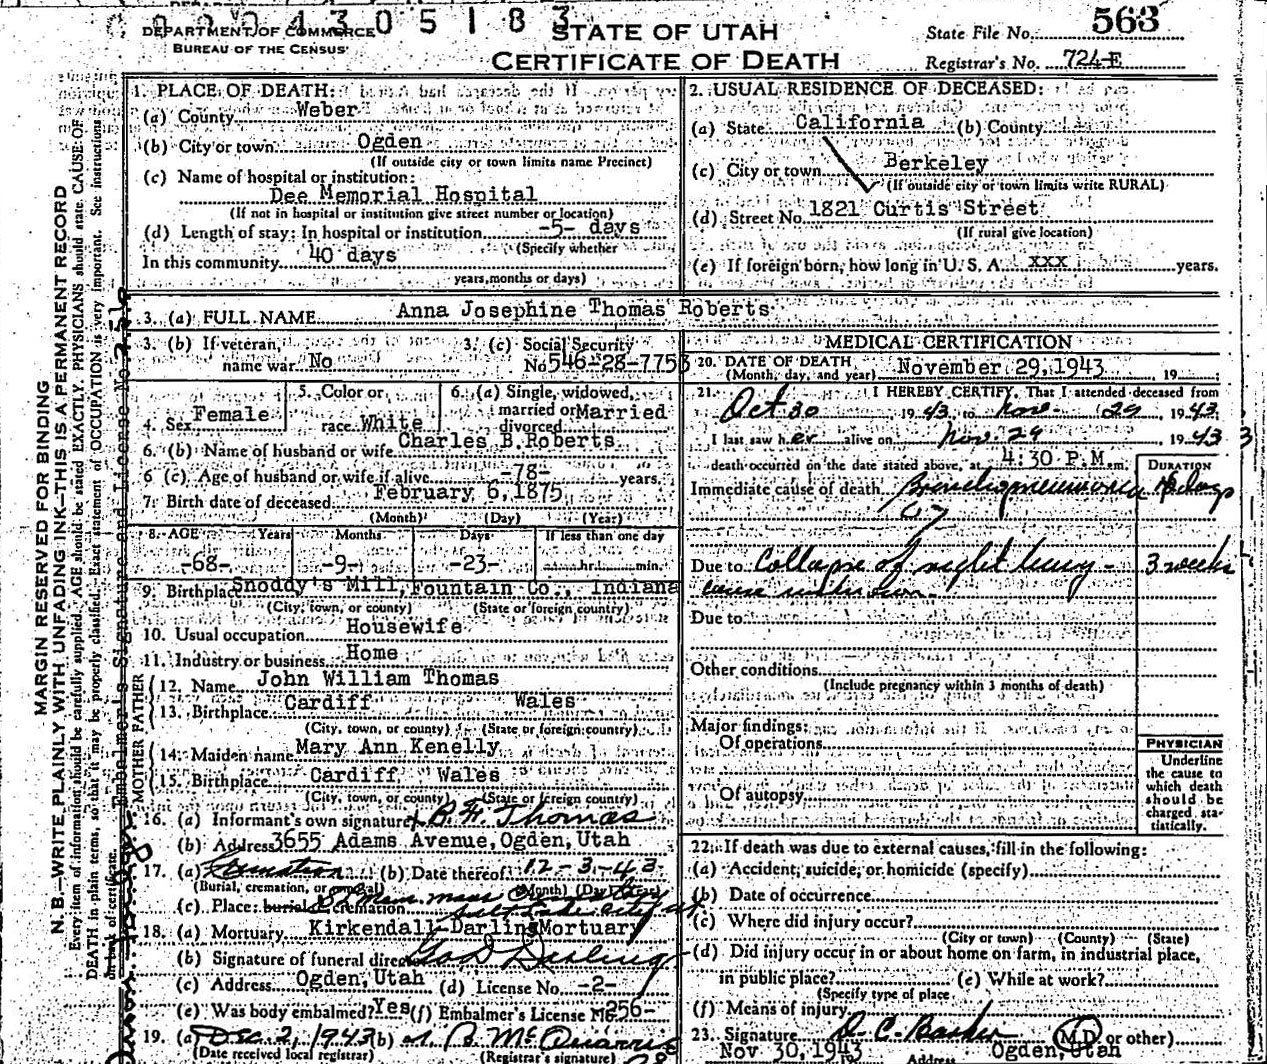 DEPARTMENT OF COMMERCE
BUREAU OF THE CENSUS
4 3 0 5 1 8 3
STATE OF UTAH
CERTIFICATE OF DEATH
State File No. 563
Registrar's No. 724-E
MARGIN RESERVED FOR BINDING
N. B.—WRITE PLAINLY WITH UNFADING INK—THIS IS A PERMANENT RECORD
Every item of information should be carefully supplied. AGE should be stated EXACTLY. PHYSICIANS should state CAUSE OF
DEATH in plain terms, so that it may be properly classified. Exact statement of OCCUPATION is very important. See instructions
on back of certificate.
Embalmer's Signature and License No.
1. PLACE OF DEATH:
(a) County Weber
(b) City or town Ogden
(If outside city or town limits name Precinct)
(c) Name of hospital or institution:
Dee Memorial Hospital
(If not in hospital or institution give street number or location)
(d) Length of stay: In hospital or institution -5- days
(Specify whether
In this community 40 days
years, months or days)
2. USUAL RESIDENCE OF DECEASED:
(a) State California (b) County
(c) City or town Berkeley
(If outside city or town limits write RURAL)
(d) Street No. 1821 Curtis Street
(If rural give location)
(e) If foreign born, how long in U. S. A. xxx years.
3. (a) FULL NAME Anna Josephine Thomas Roberts
3. (b) If veteran, name war No
3. (c) Social Security No 546-28-7753
4. Sex Female
5. Color or race White
6. (a) Single, widowed, married or divorced Married
6. (b) Name of husband or wife Charles B. Roberts
6 (c) Age of husband or wife if alive -78- years.
7. Birth date of deceased February 6, 1875
(Month) (Day) (Year)
8. AGE Years Months Days If less than one day
-68- -9- -23- hr. min.
9. Birthplace Snoddy's Mill, Fountain Co., Indiana
(City, town, or county) (State or foreign country)
10. Usual occupation Housewife
11. Industry or business Home
FATHER
12. Name John William Thomas
13. Birthplace Cardiff Wales
(City, town, or county) (State or foreign country)
MOTHER
14. Maiden name Mary Ann Kenelly
15. Birthplace Cardiff Wales
(City, town, or county) (State or foreign country)
16. (a) Informant's own signature B. H. Thomas
(b) Address 3655 Adams Avenue, Ogden, Utah
17. (a) Cremation (b) Date thereof 12-3-43
(Burial, cremation, or removal) (Month) (Day) (Year)
(c) Place: burial or cremation Salt Lake City
18. (a) Mortuary Kirkendall-Darling Mortuary
(b) Signature of funeral director Geo D Darling
(c) Address Ogden, Utah (d) License No. -2-
(e) Was body embalmed? Yes (f) Embalmer's License No 256-
19. (a) Dec. 2, 1943 (b)
(Date received local registrar) (Registrar's signature)
MEDICAL CERTIFICATION
20. DATE OF DEATH November 29, 1943, 19
(Month, day, and year)
21. I HEREBY CERTIFY, That I attended deceased from
Oct 30 1943, to Nov. 29 1943,
I last saw her alive on Nov. 29, 1943
death occurred on the date stated above, at 4:30 P.M. m.
DURATION
Immediate cause of death Bronchopneumonia days
Due to Collapse of right lung - 3 weeks
cause unknown.
Due to
Other conditions
(Include pregnancy within 3 months of death)
Major findings:
Of operations
Of autopsy
PHYSICIAN
Underline
the cause to
which death
should be
charged sta-
tistically.
22. If death was due to external causes, fill in the following:
(a) Accident, suicide, or homicide (specify)
(b) Date of occurrence
(c) Where did injury occur?
(City or town) (County) (State)
(d) Did injury occur in or about home on farm, in industrial place,
in public place? (e) While at work?
(Specify type of place
(f) Means of injury
23. Signature (M.D. or other)
Nov 30, 1943 19 Address Ogden, Utah